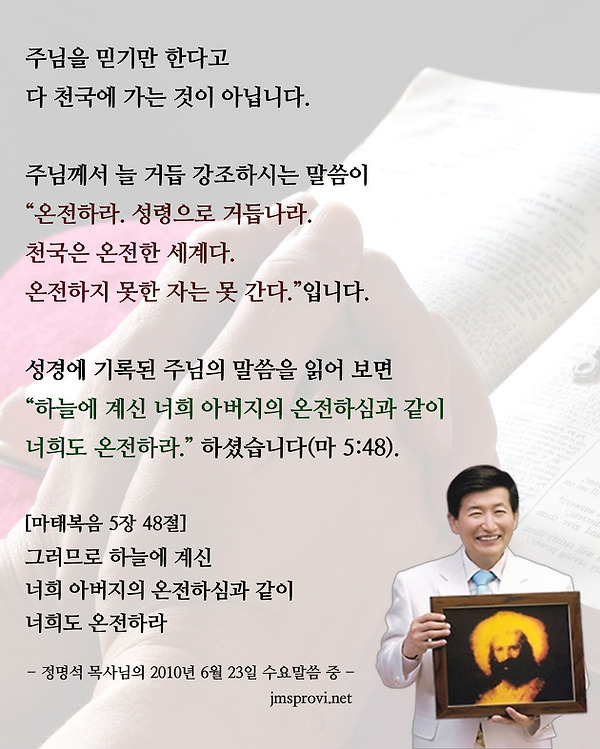 주님을 믿기만 한다고
다 천국에 가는 것이 아닙니다.
주님께서 늘 거듭 강조하시는 말씀이
“온전하라. 성령으로 거듭나라.
천국은 온전한 세계다.
온전하지 못한 자는 못 간다.”입니다.
성경에 기록된 주님의 말씀을 읽어 보면
“하늘에 계신 너희 아버지의 온전하심과 같이
너희도 온전하라.” 하셨습니다(마 5:48).
[마태복음 5장 48절]
그러므로 하늘에 계신
너희 아버지의 온전하심과 같이
너희도 온전하라
– 정명석 목사님의 2010년 6월 23일 수요말씀 중 –
jmsprovi.net